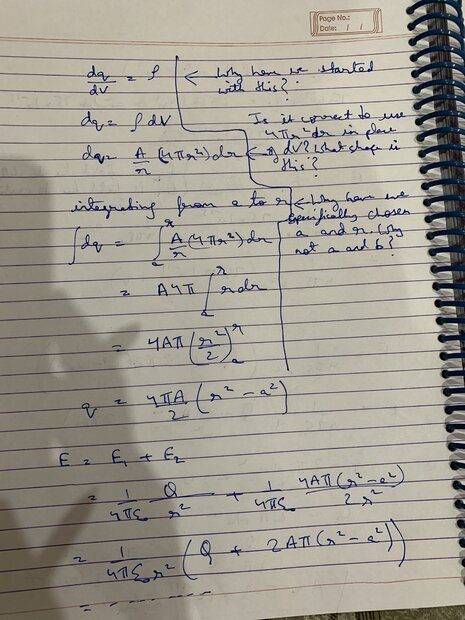 Page No.:
Date: / /
dq/dV = ρ ← Why have we started with this?
dq = ρ dV
dq = A/r (4πr²) dr ← Is it correct to use 4πr²dr in place of dV? What shape is this?
integrating from a to r ← Why have we specifically chosen a and r. Why not a and b?
∫dq = ∫ₐʳ A/r (4πr²) dr
= A4π ∫ₐʳ r dr
= 4Aπ (r²/2)ₐʳ
q = 4πA/2 (r² - a²)
E = E₁ + E₂
= 1/4πε₀ Q/r² + 1/4πε₀ 4Aπ(r² - a²)/2r²
= 1/4πε₀r² (Q + 2Aπ(r² - a²))
= - - - - - - - -